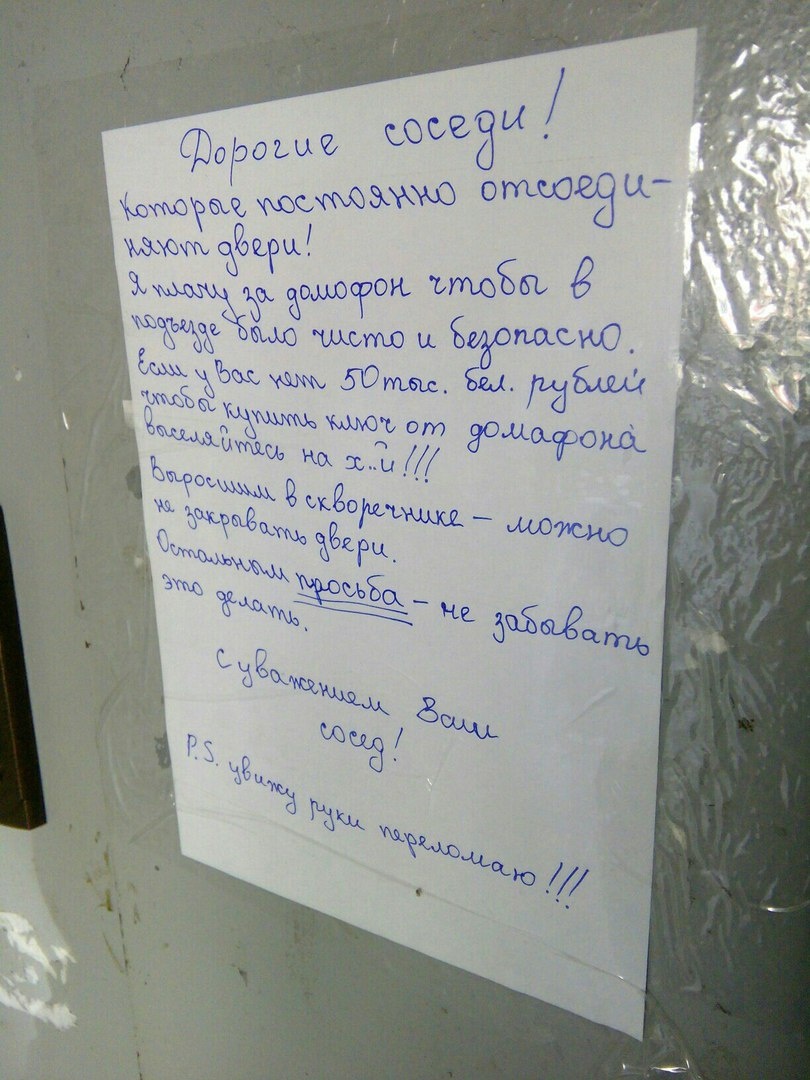 Дорогие соседи!
которые постоянно отсоеди-
няют двери!
Я плачу за домофон чтобы в
подъезде было чисто и безопасно.
Если у Вас нет 50 тыс. бел. рублей
чтобы купить ключ от домафона
выселяйтесь на х..й!!!
Выросшим в скворечнике - можно
не закрывать двери.
Остальным просьба - не забывать
это делать.
С уважением Ваш
сосед!
P.S. увижу руки переломаю!!!